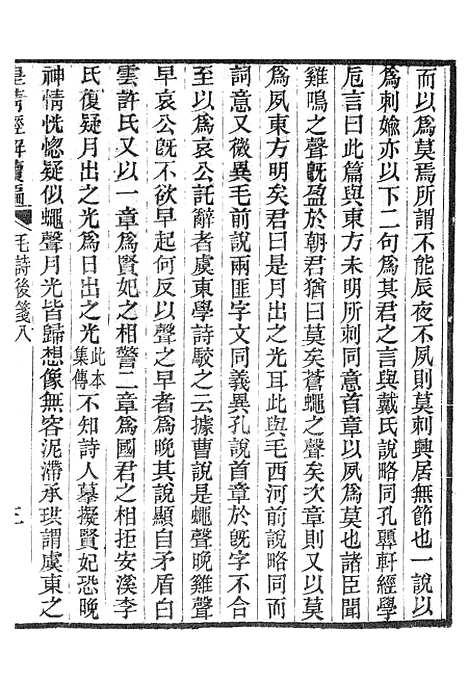 而以爲莫焉所謂不能辰夜不夙則莫刺興居無節也一說以
爲刺媮亦以下二句爲其君之言與戴氏說略同孔顨軒經學
卮言曰此篇與東方未明略同意首章以夙爲莫也諸臣聞
雞鳴之聲旣盈於朝君猶曰莫矣蒼蠅之聲矣次章則以莫
爲夙東方明矣君曰是月出之光耳此與毛西河前說略同而
詞意又微異毛前說兩匪字文同義異孔說首章於旣字不合
至以爲哀公託辭者虞東學詩駮之云據曹說是蠅聲晚雞聲
早哀公旣不欲早起何反以聲之早者爲晚其說顯自矛盾白
雲許氏又以一章爲賢妃之相警二章爲國君之相拒安溪李
氏復疑月出之光爲日出之光此本集傳不知詩人摹擬賢妃恐晚
神情恍惚疑似蠅聲月光皆歸想像無容泥滯承珙謂虞東之
皇淸經解續編 毛詩後箋八